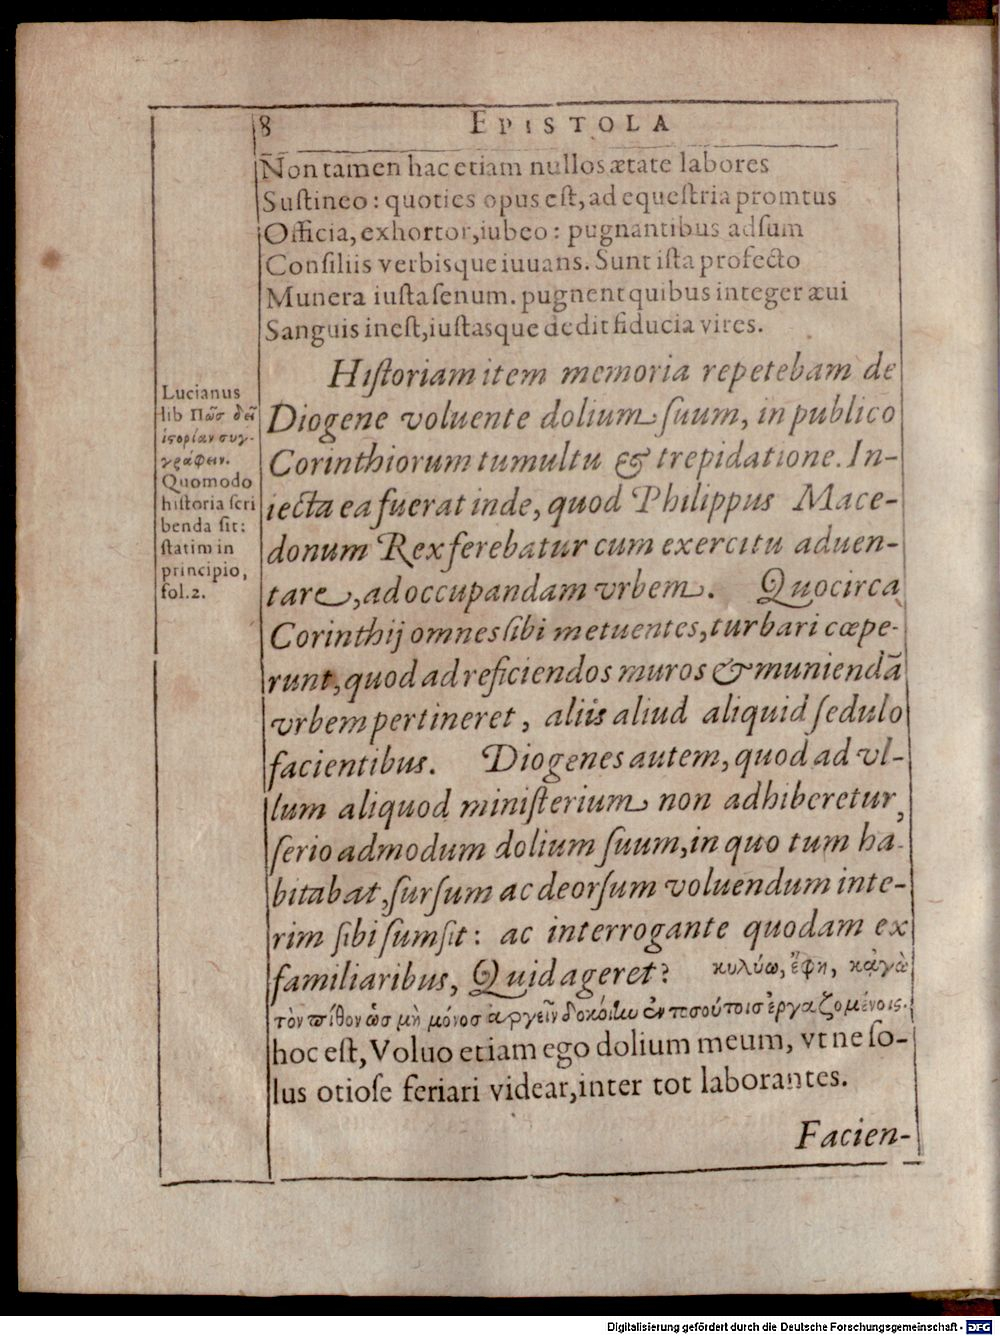 8 EPISTOLA
Non tamen hac etiam nullos ætate labores
Sustineo: quoties opus est, ad equestria promtus
Officia, exhortor, iubeo: pugnantibus adsum
Consiliis verbisque iuuans. Sunt ista profecto
Munera iusta senum. pugnent quibus integer æui
Sanguis inest, iustasque dedit fiducia vires.
Historiam item memoria repetebam de
Diogene voluente dolium suum, in publico
Corinthiorum tumultu & trepidatione. In-
iecta ea fuerat inde, quod Philippus Mace-
donum Rex ferebatur cum exercitu aduen-
tare, ad occupandam vrbem. Quocirca
Corinthij omnes sibi metuentes, turbari cœpe-
runt, quod ad reficiendos muros & muniendā
vrbem pertineret, aliis aliud aliquid sedulo
facientibus. Diogenes autem, quod ad vl-
lum aliquod ministerium non adhiberetur,
serio admodum dolium suum, in quo tum ha-
bitabat, sursum ac deorsum voluendum inte-
rim sibi sumsit: ac interrogante quodam ex
familiaribus, Quid ageret? κυλύω, ἔφη, κἀγὼ
τὸν πίθον ὡσ μὴ μόνοσ ἀργεῖν δοκοίην ἐν τοσούτοισ ἐργαζομένοις.
hoc est, Voluo etiam ego dolium meum, vt ne so-
lus otiose feriari videar, inter tot laborantes.
Facien-
Lucianus
lib Πῶσ δεῖ
ἱστορίαν συγ-
γράφειν.
Quomodo
historia scri
benda sit:
statim in
principio,
fol. 2.
Digitalisierung gefördert durch die Deutsche Forschungsgemeinschaft - DFG